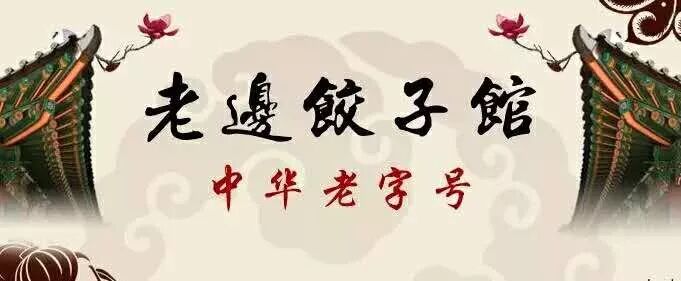 老邊餃子館
中华老字号